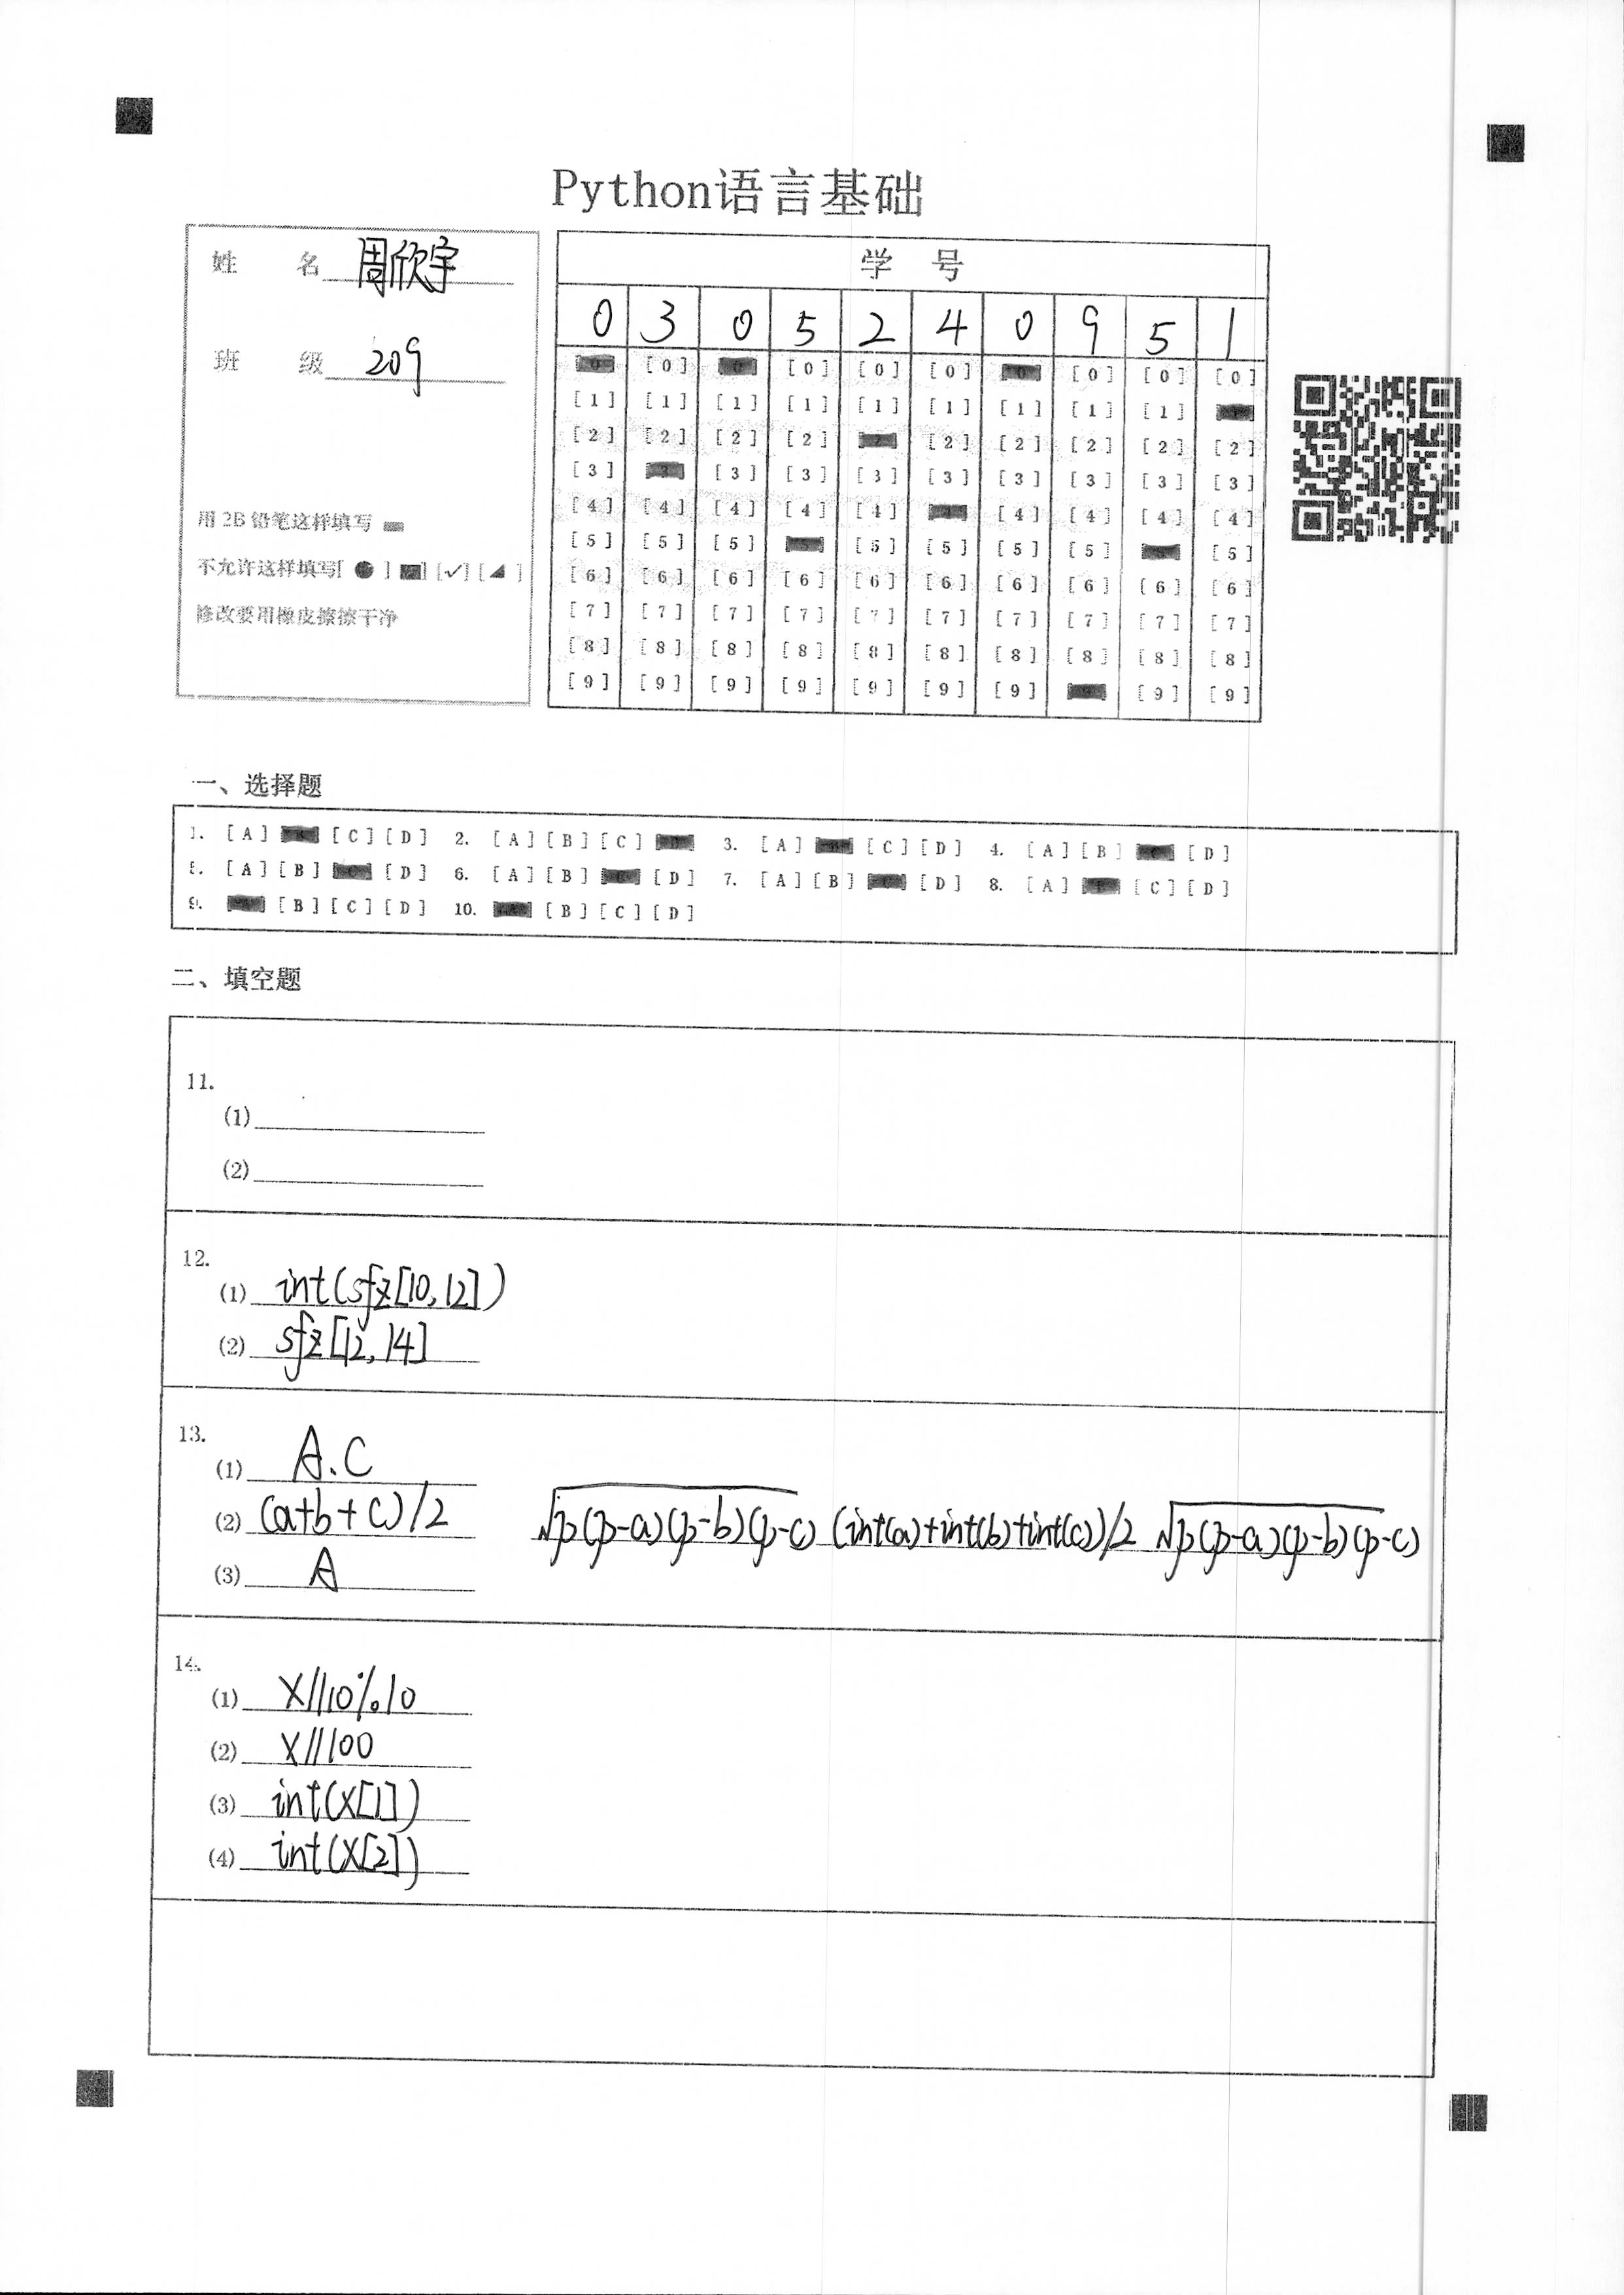 Python语言基础
姓 名 周欣宇
班 级 209
用 2B 铅笔这样填写
不允许这样填写[ ● ] [■] [✓] [◢ ]
修改要用橡皮擦擦干净
学 号
0 3 0 5 2 4 0 9 5 1
[0] [0] [0] [0] [0] [0] [0] [0] [0] [0]
[1] [1] [1] [1] [1] [1] [1] [1] [1]
[2] [2] [2] [2] [2] [2] [2] [2] [2] [2]
[3] [3] [3] [3] [3] [3] [3] [3] [3]
[4] [4] [4] [4] [4] [4] [4] [4] [4]
[5] [5] [5] [5] [5] [5] [5] [5]
[6] [6] [6] [6] [6] [6] [6] [6] [6] [6]
[7] [7] [7] [7] [7] [7] [7] [7] [7] [7]
[8] [8] [8] [8] [8] [8] [8] [8] [8] [8]
[9] [9] [9] [9] [9] [9] [9] [9] [9]
一、选择题
1. [A] [C] [D] 2. [A] [B] [C] 3. [A] [C] [D] 4. [A] [B] [D]
5. [A] [B] [D] 6. [A] [B] [D] 7. [A] [B] [D] 8. [A] [C] [D]
9. [B] [C] [D] 10. [B] [C] [D]
二、填空题
11.
(1)
(2)
12.
(1) int(sfz[10,12])
(2) sfz[12,14]
13.
(1) A.C
(2) (a+b+c)/2 √p(p-a)(p-b)(p-c) (int(a)+int(b)+int(c))/2 √p(p-a)(p-b)(p-c)
(3) A
14.
(1) x//10%10
(2) x//100
(3) int(x[1])
(4) int(x[2])